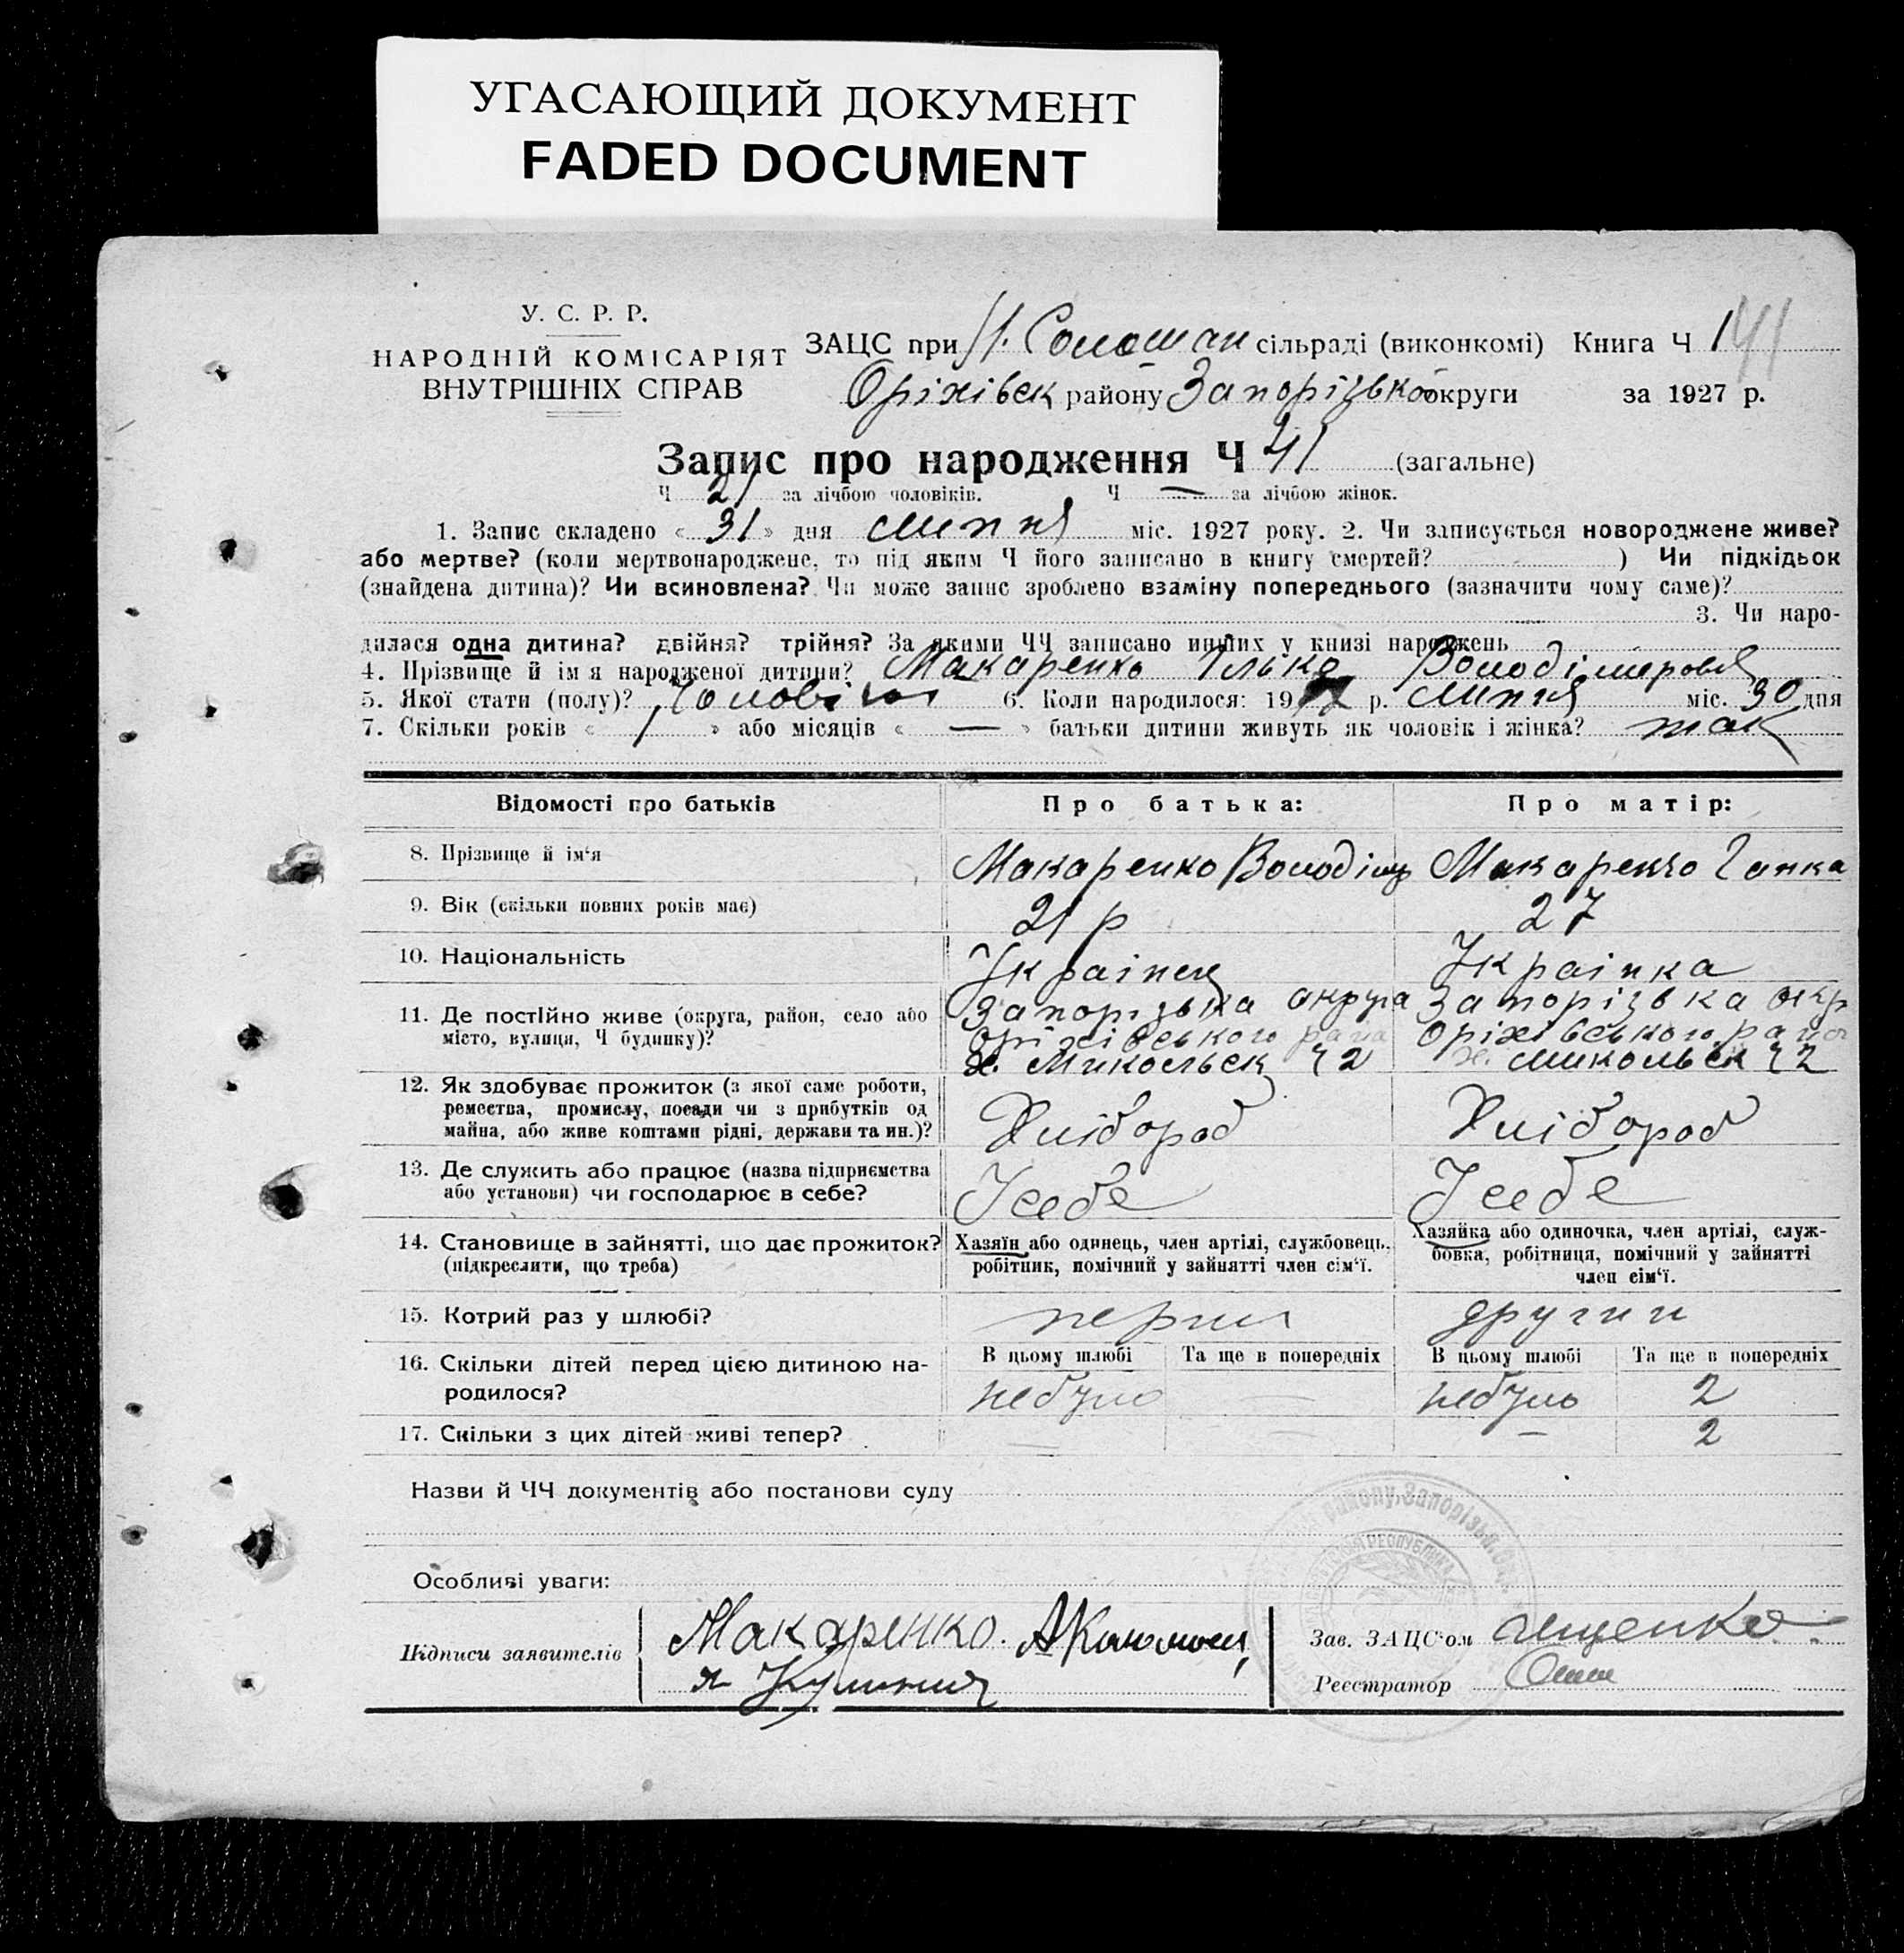 УГАСАЮЩИЙ ДОКУМЕНТ
FADED DOCUMENT
У. С. Р. Р.
НАРОДНІЙ КОМІСАРІЯТ
ВНУТРІШНІХ СПРАВ
ЗАЦС при Н. Солошан сільраді (виконкомі) Книга Ч 1 41
Оріхівськ району Запорізької округи за 1927 р.
Запис про народження Ч 41 (загальне)
Ч 21 за лічбою чоловіків. Ч — за лічбою жінок.
1. Запис складено « 31 » дня липня міс. 1927 року. 2. Чи записується новороджене живе?
або мертве? (коли мертвонароджене, то під яким Ч його записано в книгу смертей? ) Чи підкідьок
(знайдена дитина)? Чи всиновлена? Чи може запис зроблено взаміну попереднього (зазначити чому саме)?
3. Чи наро-
дилася одна дитина? двійня? трійня? За якими ЧЧ записано инших у книзі народжень
4. Прізвище й ім я народженої дитини? Макаренко Ілько Володімеровіч
5. Якої стати (полу)? Чоловічої 6. Коли народилося: 1927 р. липня міс. 30 дня
7. Скільки років « 1 » або місяців « — » батьки дитини живуть як чоловік і жінка? так
Відомості про батьків Про батька: Про матір:
8. Прізвище й ім‘я Макаренко Володімір Макаренко Гапка
9. Вік (скільки повних років має) 21 р 27
10. Національність Українец Українка
11. Де постійно живе (округа, район, село або Запорізька округа Запорізька окр
місто, вулиця, Ч будинку)? Оріхівського района Оріхівського район
х. Микольск Ч 2 х. Микольск Ч 2
12. Як здобуває прожиток (з якої саме роботи,
ремества, промислу, посади чи з прибутків од Хлібороб Хлібороб
майна, або живе коштами рідні, держави та ин.)?
13. Де служить або працює (назва підприємства
або установи) чи господарює в себе? У себе У себе
14. Становище в зайнятті, що дає прожиток? Хазяїн або одинець, член артілі, службовець, Хазяйка або одиночка, член артілі, служ-
(підкреслити, що треба) робітник, помічний у зайнятті член сім‘ї. бовка, робітниця, помічний у зайнятті
член сім‘ї.
15. Котрий раз у шлюбі? перший другий
16. Скільки дітей перед цією дитиною на- В цьому шлюбі Та ще в попередніх В цьому шлюбі Та ще в попередніх
родилося? небуло — небуло 2
17. Скільки з цих дітей живі тепер? — — — 2
Назви й ЧЧ документів або постанови суду
району, Запорізьк. Окр.
Особливі уваги:
Підписи заявителів Макаренко. Зав. ЗАЦС‘ом Ященко
Реєстратор